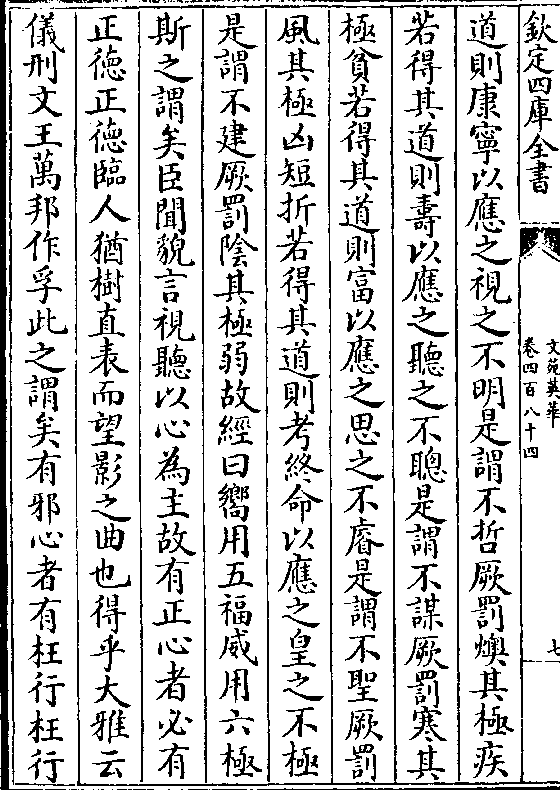 欽定四庫全書
文苑英華
卷四百八十四
七
道則康寧以應之視之不明是謂不哲厥罰燠其極疾
若得其道則壽以應之聽之不聰是謂不謀厥罰寒其
極貧若得其道則富以應之思之不睿是謂不聖厥罰
風其極凶短折若得其道則考終命以應之皇之不極
是謂不建厥罰陰其極弱故經曰嚮用五福威用六極
斯之謂矣臣聞貌言視聽以心為主故有正心者必有
正徳正徳臨人猶樹直表而望影之曲也得乎大雅云
儀刑文王萬邦作孚此之謂矣有邪心者有枉行枉行